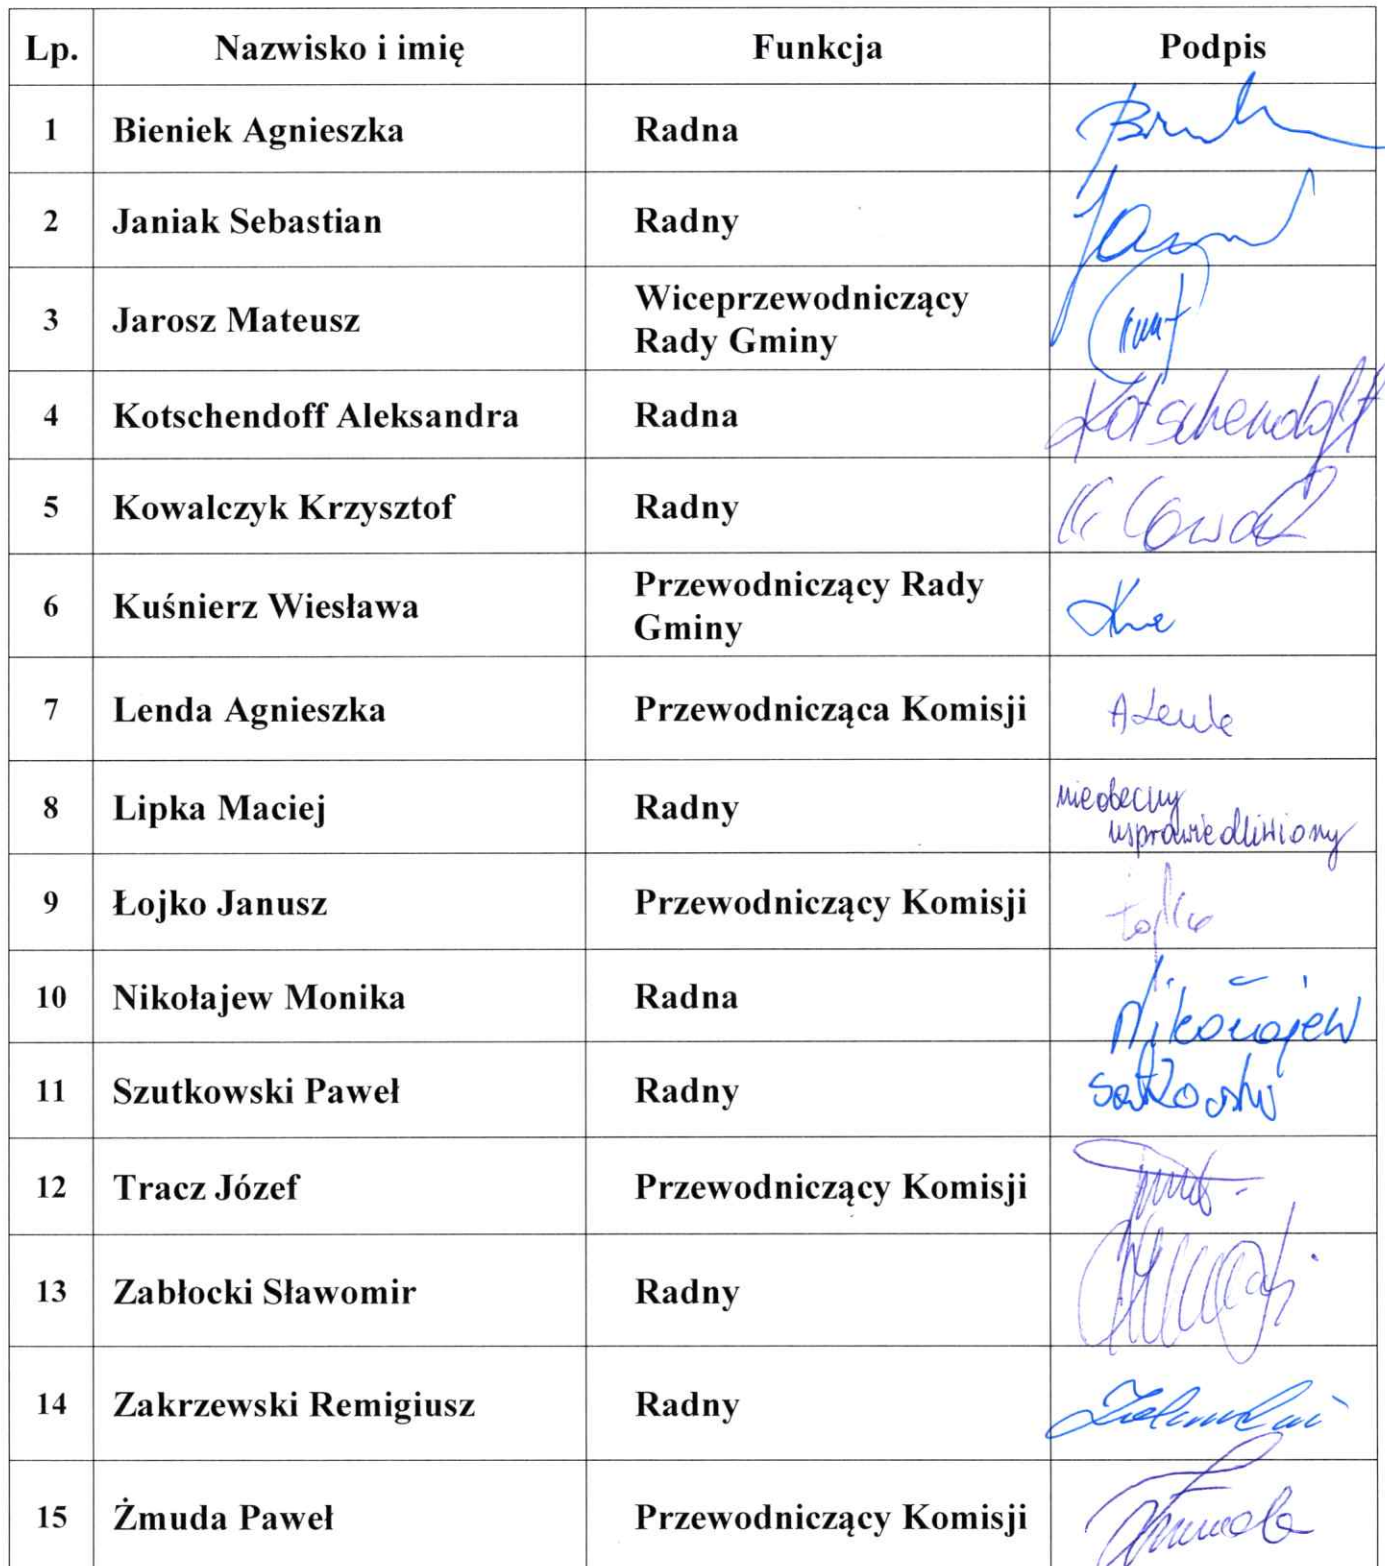 Lp. Nazwisko i imię Funkcja Podpis
1 Bieniek Agnieszka Radna
2 Janiak Sebastian Radny
3 Jarosz Mateusz Wiceprzewodniczący
Rady Gminy
4 Kotschendoff Aleksandra Radna Kotschendoff
5 Kowalczyk Krzysztof Radny
6 Kuśnierz Wiesława Przewodniczący Rady
Gminy
7 Lenda Agnieszka Przewodnicząca Komisji
8 Lipka Maciej Radny nieobecny
usprawiedliwiony
9 Łojko Janusz Przewodniczący Komisji
10 Nikołajew Monika Radna Nikołajew
11 Szutkowski Paweł Radny
12 Tracz Józef Przewodniczący Komisji
13 Zabłocki Sławomir Radny
14 Zakrzewski Remigiusz Radny
15 Żmuda Paweł Przewodniczący Komisji